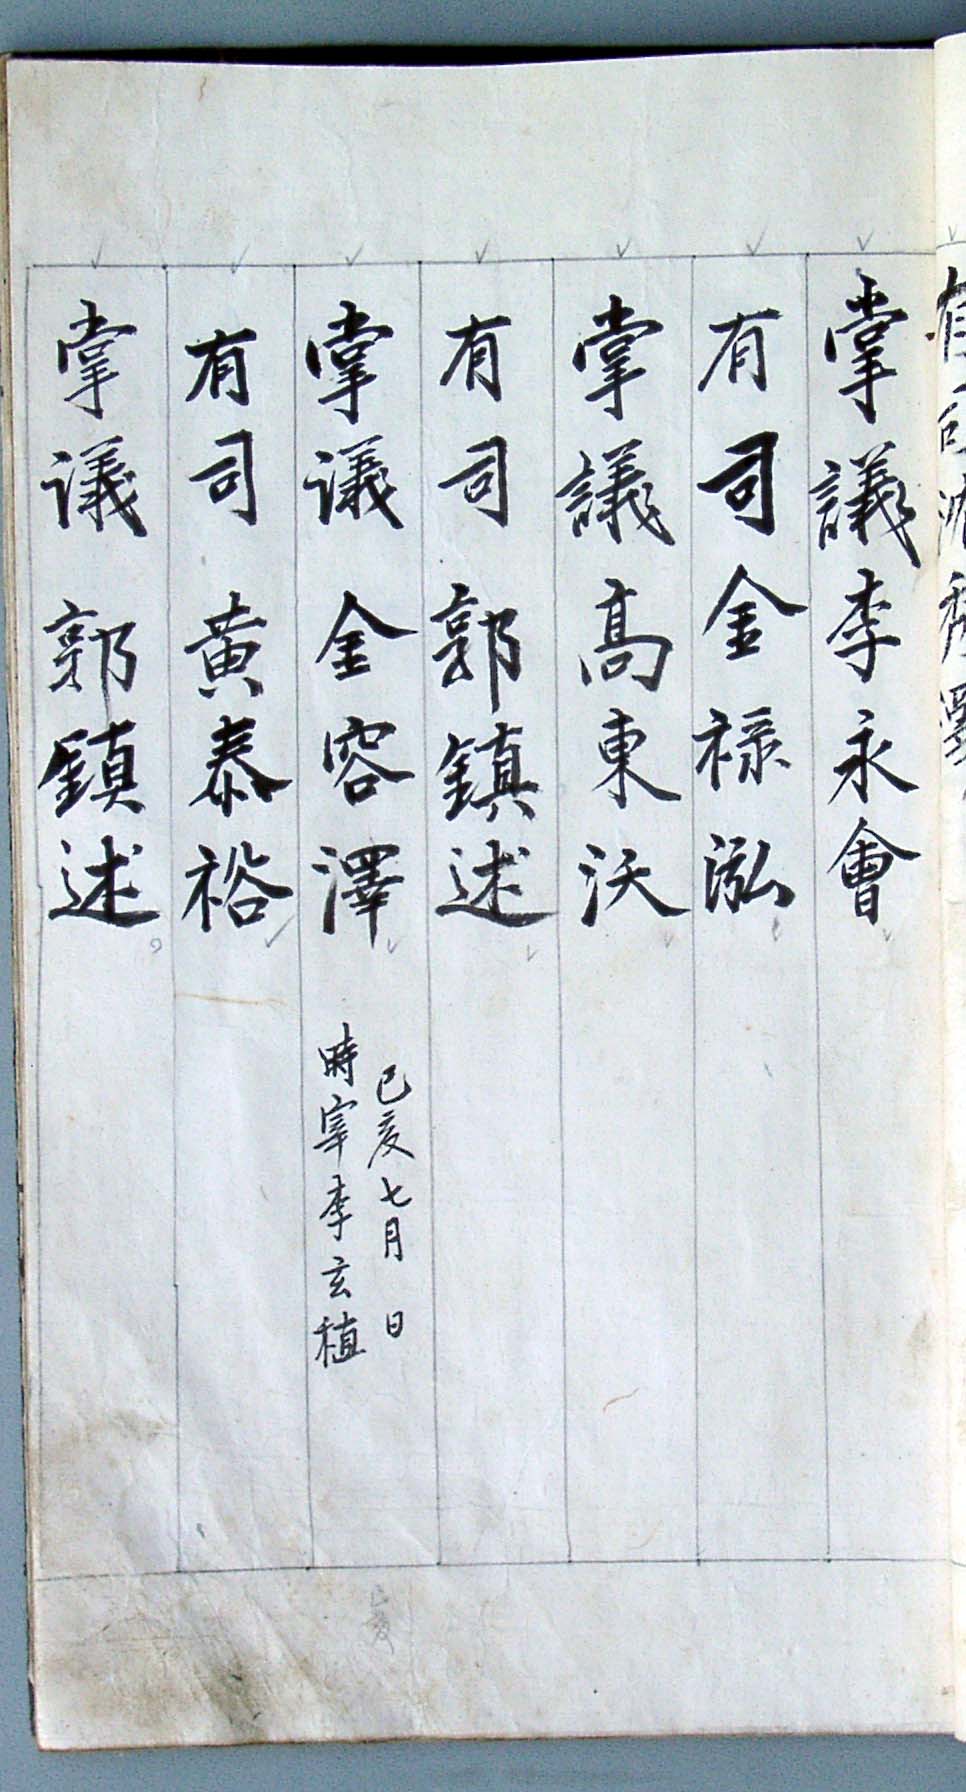 有司沈
掌議李永會
有司金祿泓
掌議高東沃
有司郭鎮述
掌議金容澤
己亥七月 日
時宰李玄稙
有司黃泰裕
掌議郭鎮述
己亥